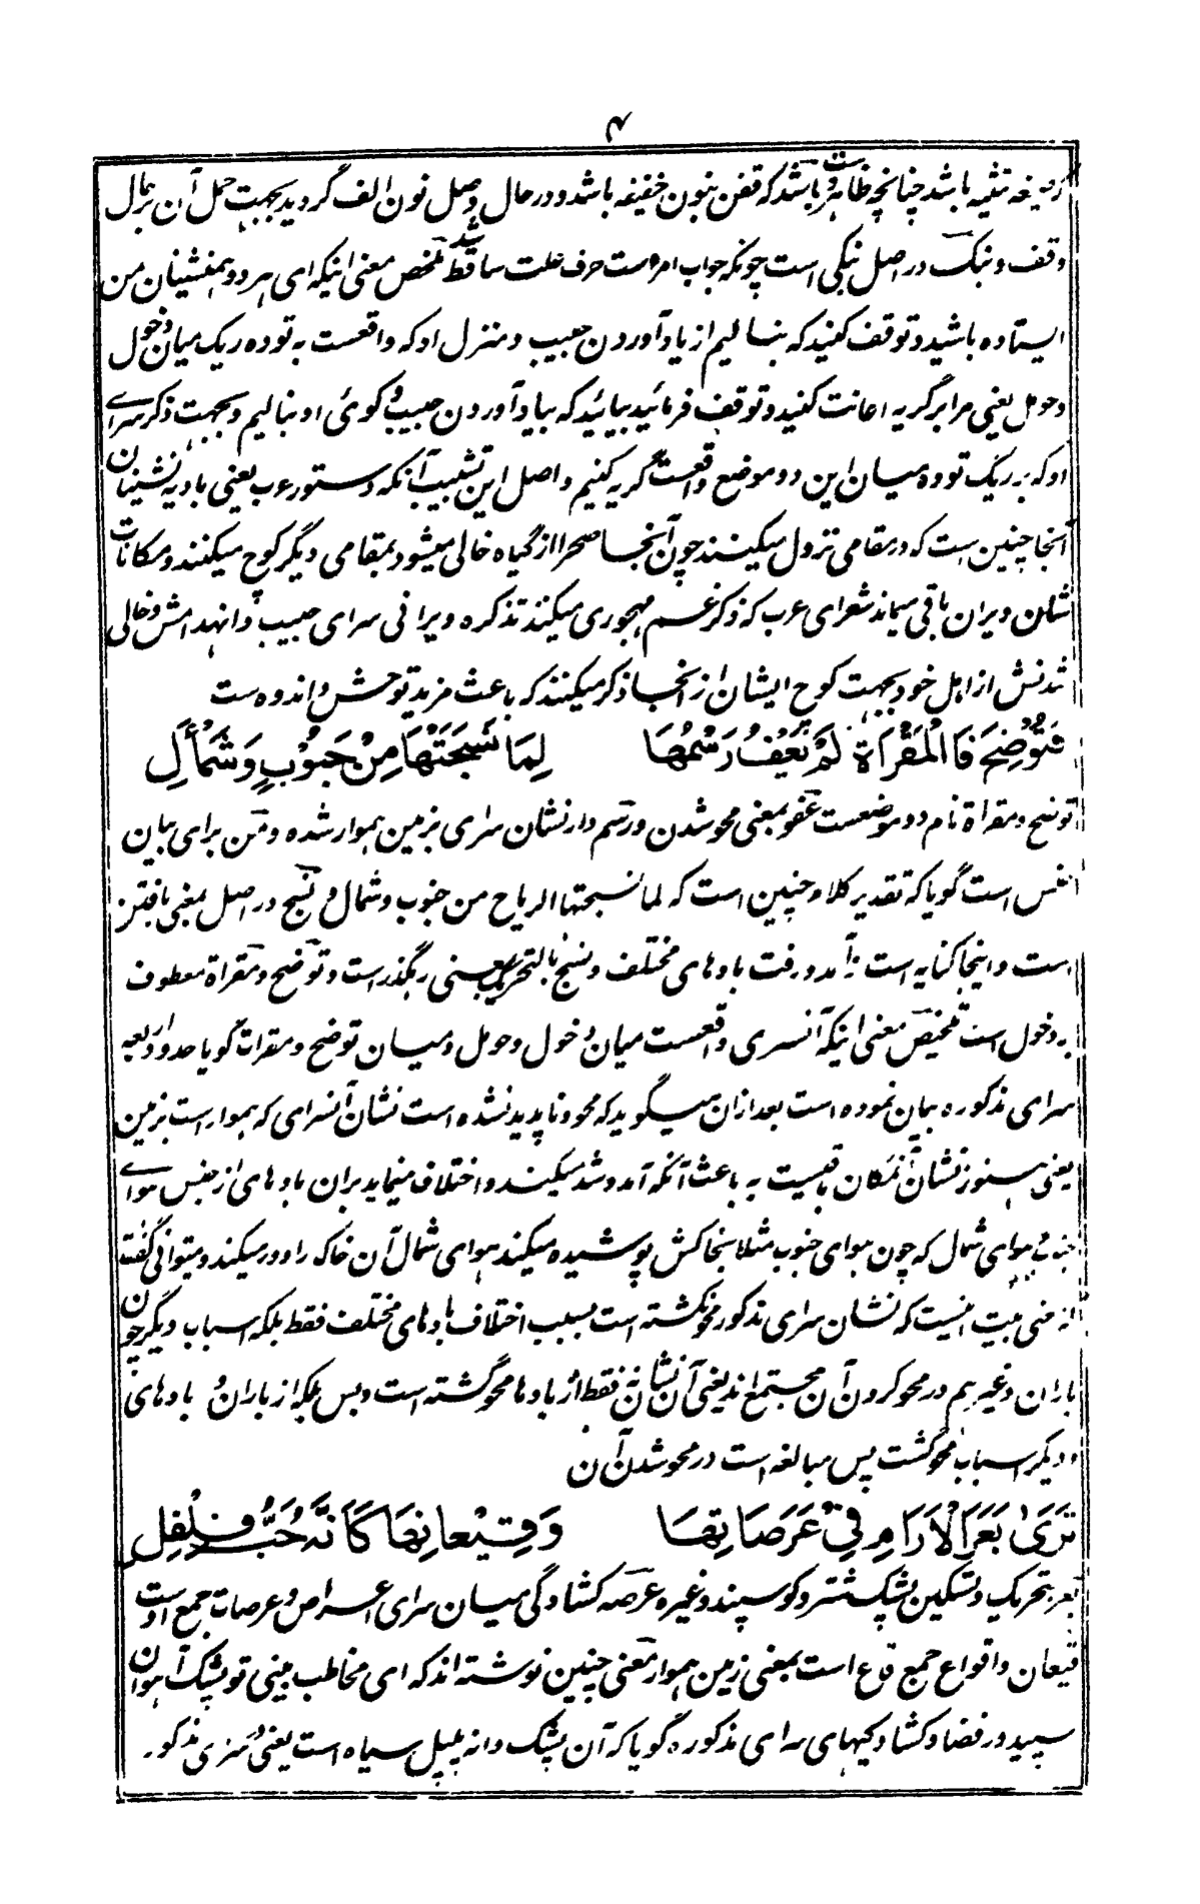 ۴
صیغه تثنیه باشد چنانچه ظاهر است و یا باشد که قفن بنون خفیفه باشد و در حال وصل نون الف گردید بجهت حمل آن بر حال
وقف و نبک در اصل نبکی است چونکه جواب امر است حرف علت ساقط شد ملخص معنی اینکه ای هر دو همنشینان من
ایستاده باشید و توقف کنید که بنالیم از یاد آوردن حبیب و منزل او که واقعست به توده ریگ میان دخول
و حومل یعنی مرا بر گریه اعانت کنید و توقف فرمائید بیائید که بیاد آوردن حبیب و کوئی او بنالیم و بجهت ذکر سراے
او که بر ریگ توده میان این دو موضع واقعست گریه کنیم و اصل این تشبیب آنکه دستور عرب یعنی بادیه نشینان
آنجا چنین است که در مقامی نزول میکنند چون آنجا صحرا از گیاه خالی میشود بمقامی دیگر کوچ میکنند و مکانات
شان ویران باقی میماند شعرای عرب که ذکر غم مهجوری میکنند تذکره ویرانی سرای حبیب و انهدامش و خالی
شدنش از اهل خود بجهت کوچ ایشان از آنجا ذکر میکنند که باعث مزید توحش و اندوه ست
فَتُوْضِحَ فَالْمَقْرَاةِ لَمْ يَعْفُ رَسْمُهَا لِمَا نَسَجَتْهَا مِنْ جَنُوْبٍ وَشَمْأَلِ
توضح و مقراة نام دو موضعست عفو بمعنی محو شدن و رسم دار نشان سرای بزمین هموار شده و من برای بیان
جنس است گویا که تقدیر کلام چنین است که لما نسجتها الریاح من جنوب و شمال و نسج در اصل بمعنی بافتن
است و اینجا کنایه است بآمد و رفت بادهای مختلف و نسج بالتحریک بمعنی رهگذر است و توضح و مقراة معطوف
به دخول است تلخیص معنی اینکه آنسرای واقعست میان دخول و حومل و میان توضح و مقرات گویا حدود اربعه
سرای مذکوره بیان نموده است بعد ازان میگوید که محو و ناپدید نشده است نشان آنسرای که هموار است بزمین
یعنی هنوز نشان آنمکان باقیست به باعث آنکه آمد و شد میکنند و اختلاف مینماید بران بادهای از جنس هواے
جنوب و هوای شمال که چون هوای جنوب مثلا بخاکش پوشیده میکند هوای شمال آن خاک را دور میکند و میتوانی گفت
که معنی بیت اینست که نشان سرای مذکور محو نگشته است بسبب اختلاف بادهای مختلف فقط بلکه اسباب دیگر چون
باران وغیره هم در محو کردن آن مجتمع اند یعنی آن نشان نه فقط از بادها محو گشته است و بس بلکه از باران و بادهای
و دیگر اسباب محو گشت پس مبالغه است در محو شدن آن
تَرَىٰ بَعَرَ الْاٰرَامِ فِيْ عَرَصَاتِهَا وَقِيْعَانِهَا كَاَنَّهُ حَبُّ فُلْفُلِ
بعر بتحریک و تسکین پشک شتر و گوسپند وغیره عرصه کشادگی میان سرای اعراص و عرصات جمع اوست
قیعان و اقواع جمع قاع است بمعنی زمین هموار معنی چنین نوشته اند که ای مخاطب بینی تو پشک آهوان
سپید در فضا و کشادگیهای سرای مذکوره گویا که آن پشک دانه پلپل سیاه است یعنی در سرای مذکور